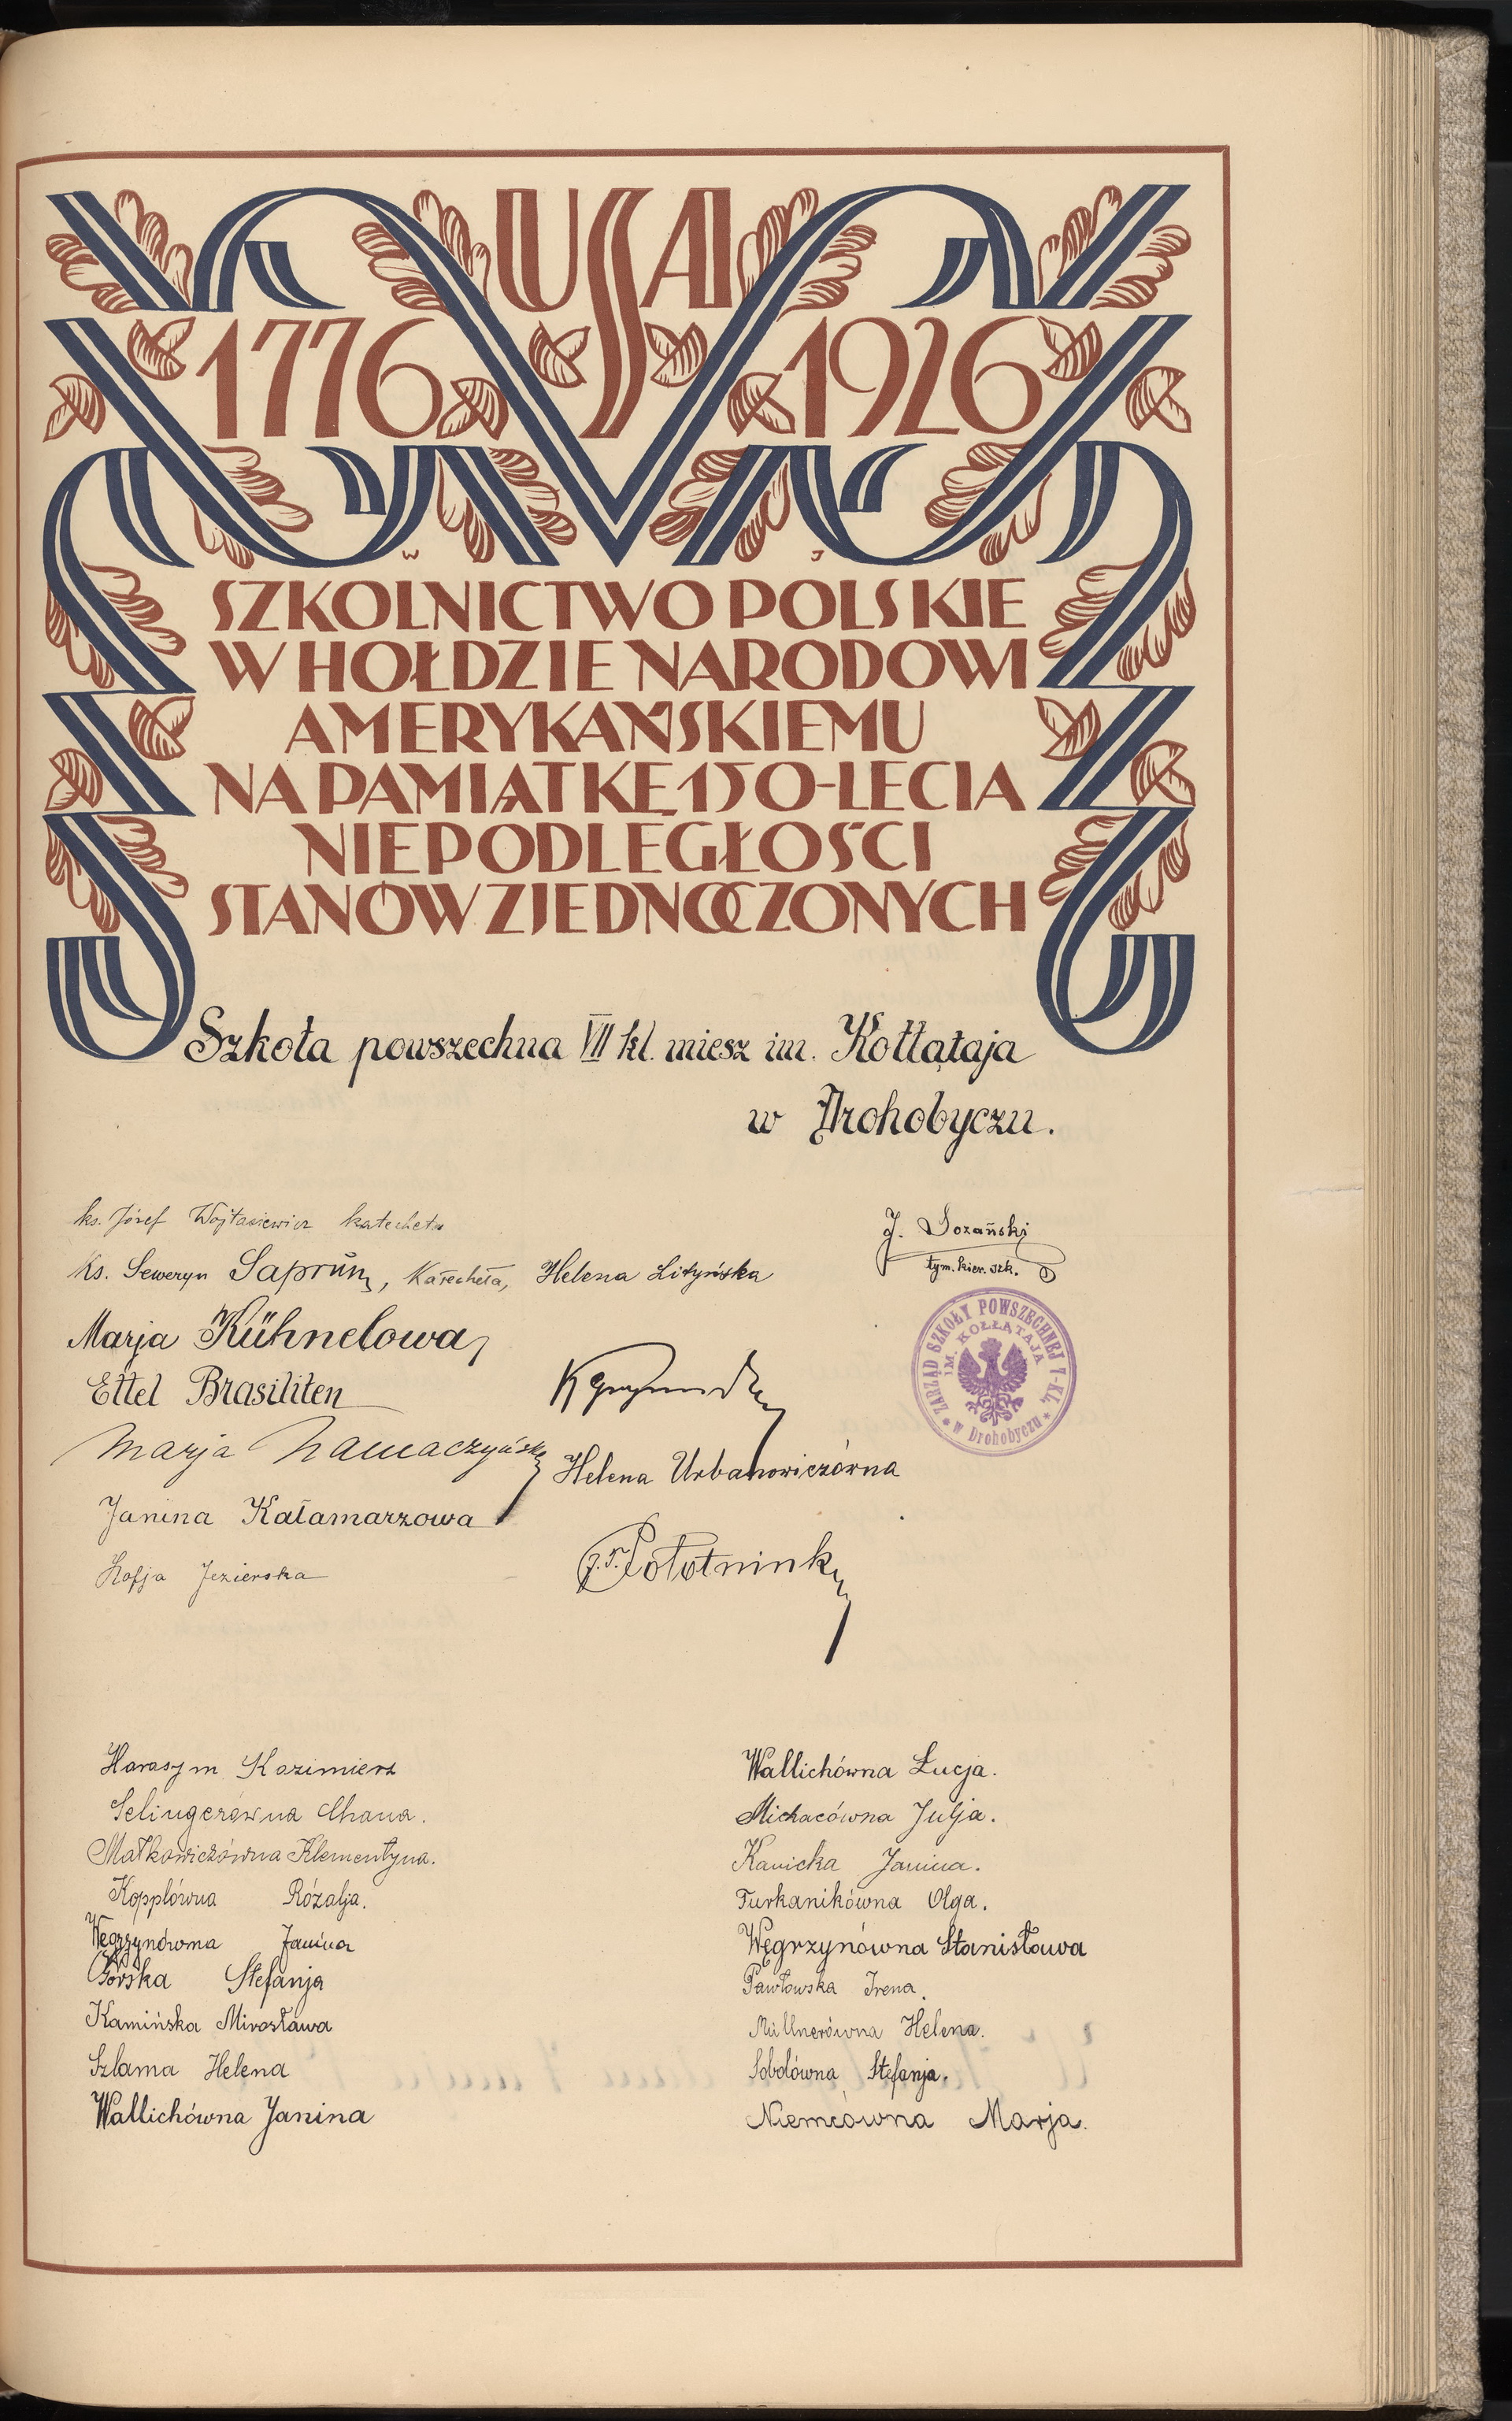 USA
1776 1926
W J
SZKOLNICTWO POLSKIE
W HOŁDZIE NARODOWI
AMERYKAŃSKIEMU
NA PAMIĄTKĘ 150-LECIA
NIEPODLEGŁOŚCI
STANÓW ZJEDNOCZONYCH
Szkoła powszechna VII kl. miesz im. Kołłątaja
w Drohobyczu.
ks. Józef Wojtasiewicz katecheta
Ks. Seweryn Saprun, Katecheta, Helena Lityńska
J. Dozański
tym. kier. szk.
ZARZĄD SZKOŁY POWSZECHNEJ 7-KL.
IM. KOŁŁĄTAJA
w Drohobyczu
Marja Kühnelowa,
Ettel Brasiliten
Marja
Helena Urbanowiczówna
Janina Kałamarzowa
Zofja Jezierska
Harasym Kazimierz
Selingerówna Chana.
Małkowiczówna Klementyna.
Kopplówna Rózalja.
Węgrzynówna Janina
Górska Stefanja
Kamińska Mirosława
Szlama Helena
Wallichówna Janina
Wallichówna Łucja.
Michacówna Julja.
Kanicka Janina.
Turkanikówna Olga.
Węgrzynówna Stanisława
Pawłowska Irena.
Müllnerówna Helena.
Sobolówna Stefanja.
Niemcówna Marja.